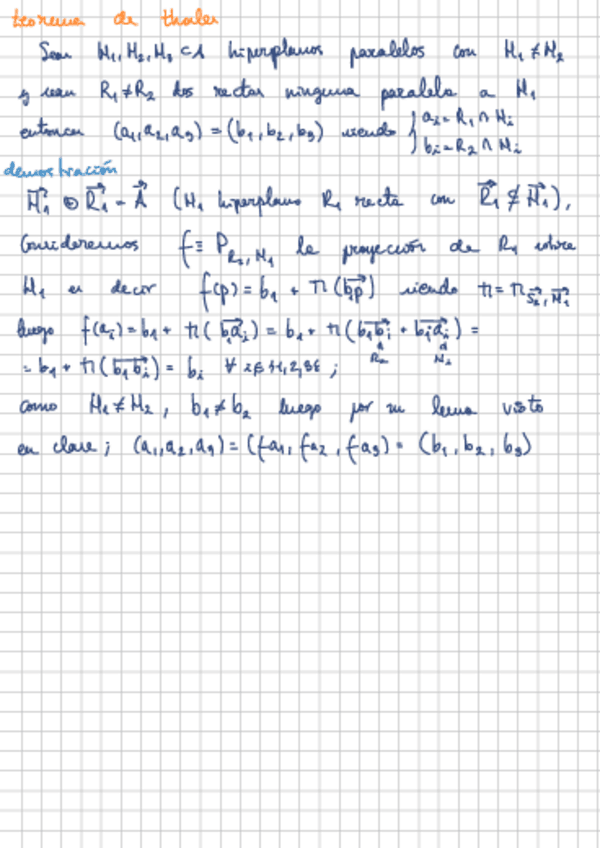 teorema de thales
Sean H₁, H₂, H₃ ⊂ A hiperplanos paralelos con H₁ ≠ H₂
y sean R₁ ≠ R₂ dos rectas ninguna paralela a H₁
entonces (a₁, a₂, a₃) = (b₁, b₂, b₃) siendo { aᵢ = R₁ ∩ Hᵢ
bᵢ = R₂ ∩ Hᵢ
demostración
H₁⃗ ⊕ R₁⃗ = A⃗ (H₁ hiperplano R₁ recta con R₁⃗ ⊄ H₁⃗),
Consideremos f ≡ P R₂, H₁ la proyección de R₁ sobre
H₁ es decir f(p) = b₁ + π(bp⃗) siendo π = π S₂⃗, H₁⃗
luego f(aᵢ) = b₁ + π(b₁aᵢ⃗) = b₁ + π(b₁bᵢ⃗ + bᵢaᵢ⃗) =
= b₁ + π(b₁bᵢ⃗) = bᵢ ∀ i ∈ {1, 2, 3} ;
como H₁ ≠ H₂, b₁ ≠ b₂ luego por un lema visto
en clase ; (a₁, a₂, a₃) = (fa₁, fa₂, fa₃) = (b₁, b₂, b₃)